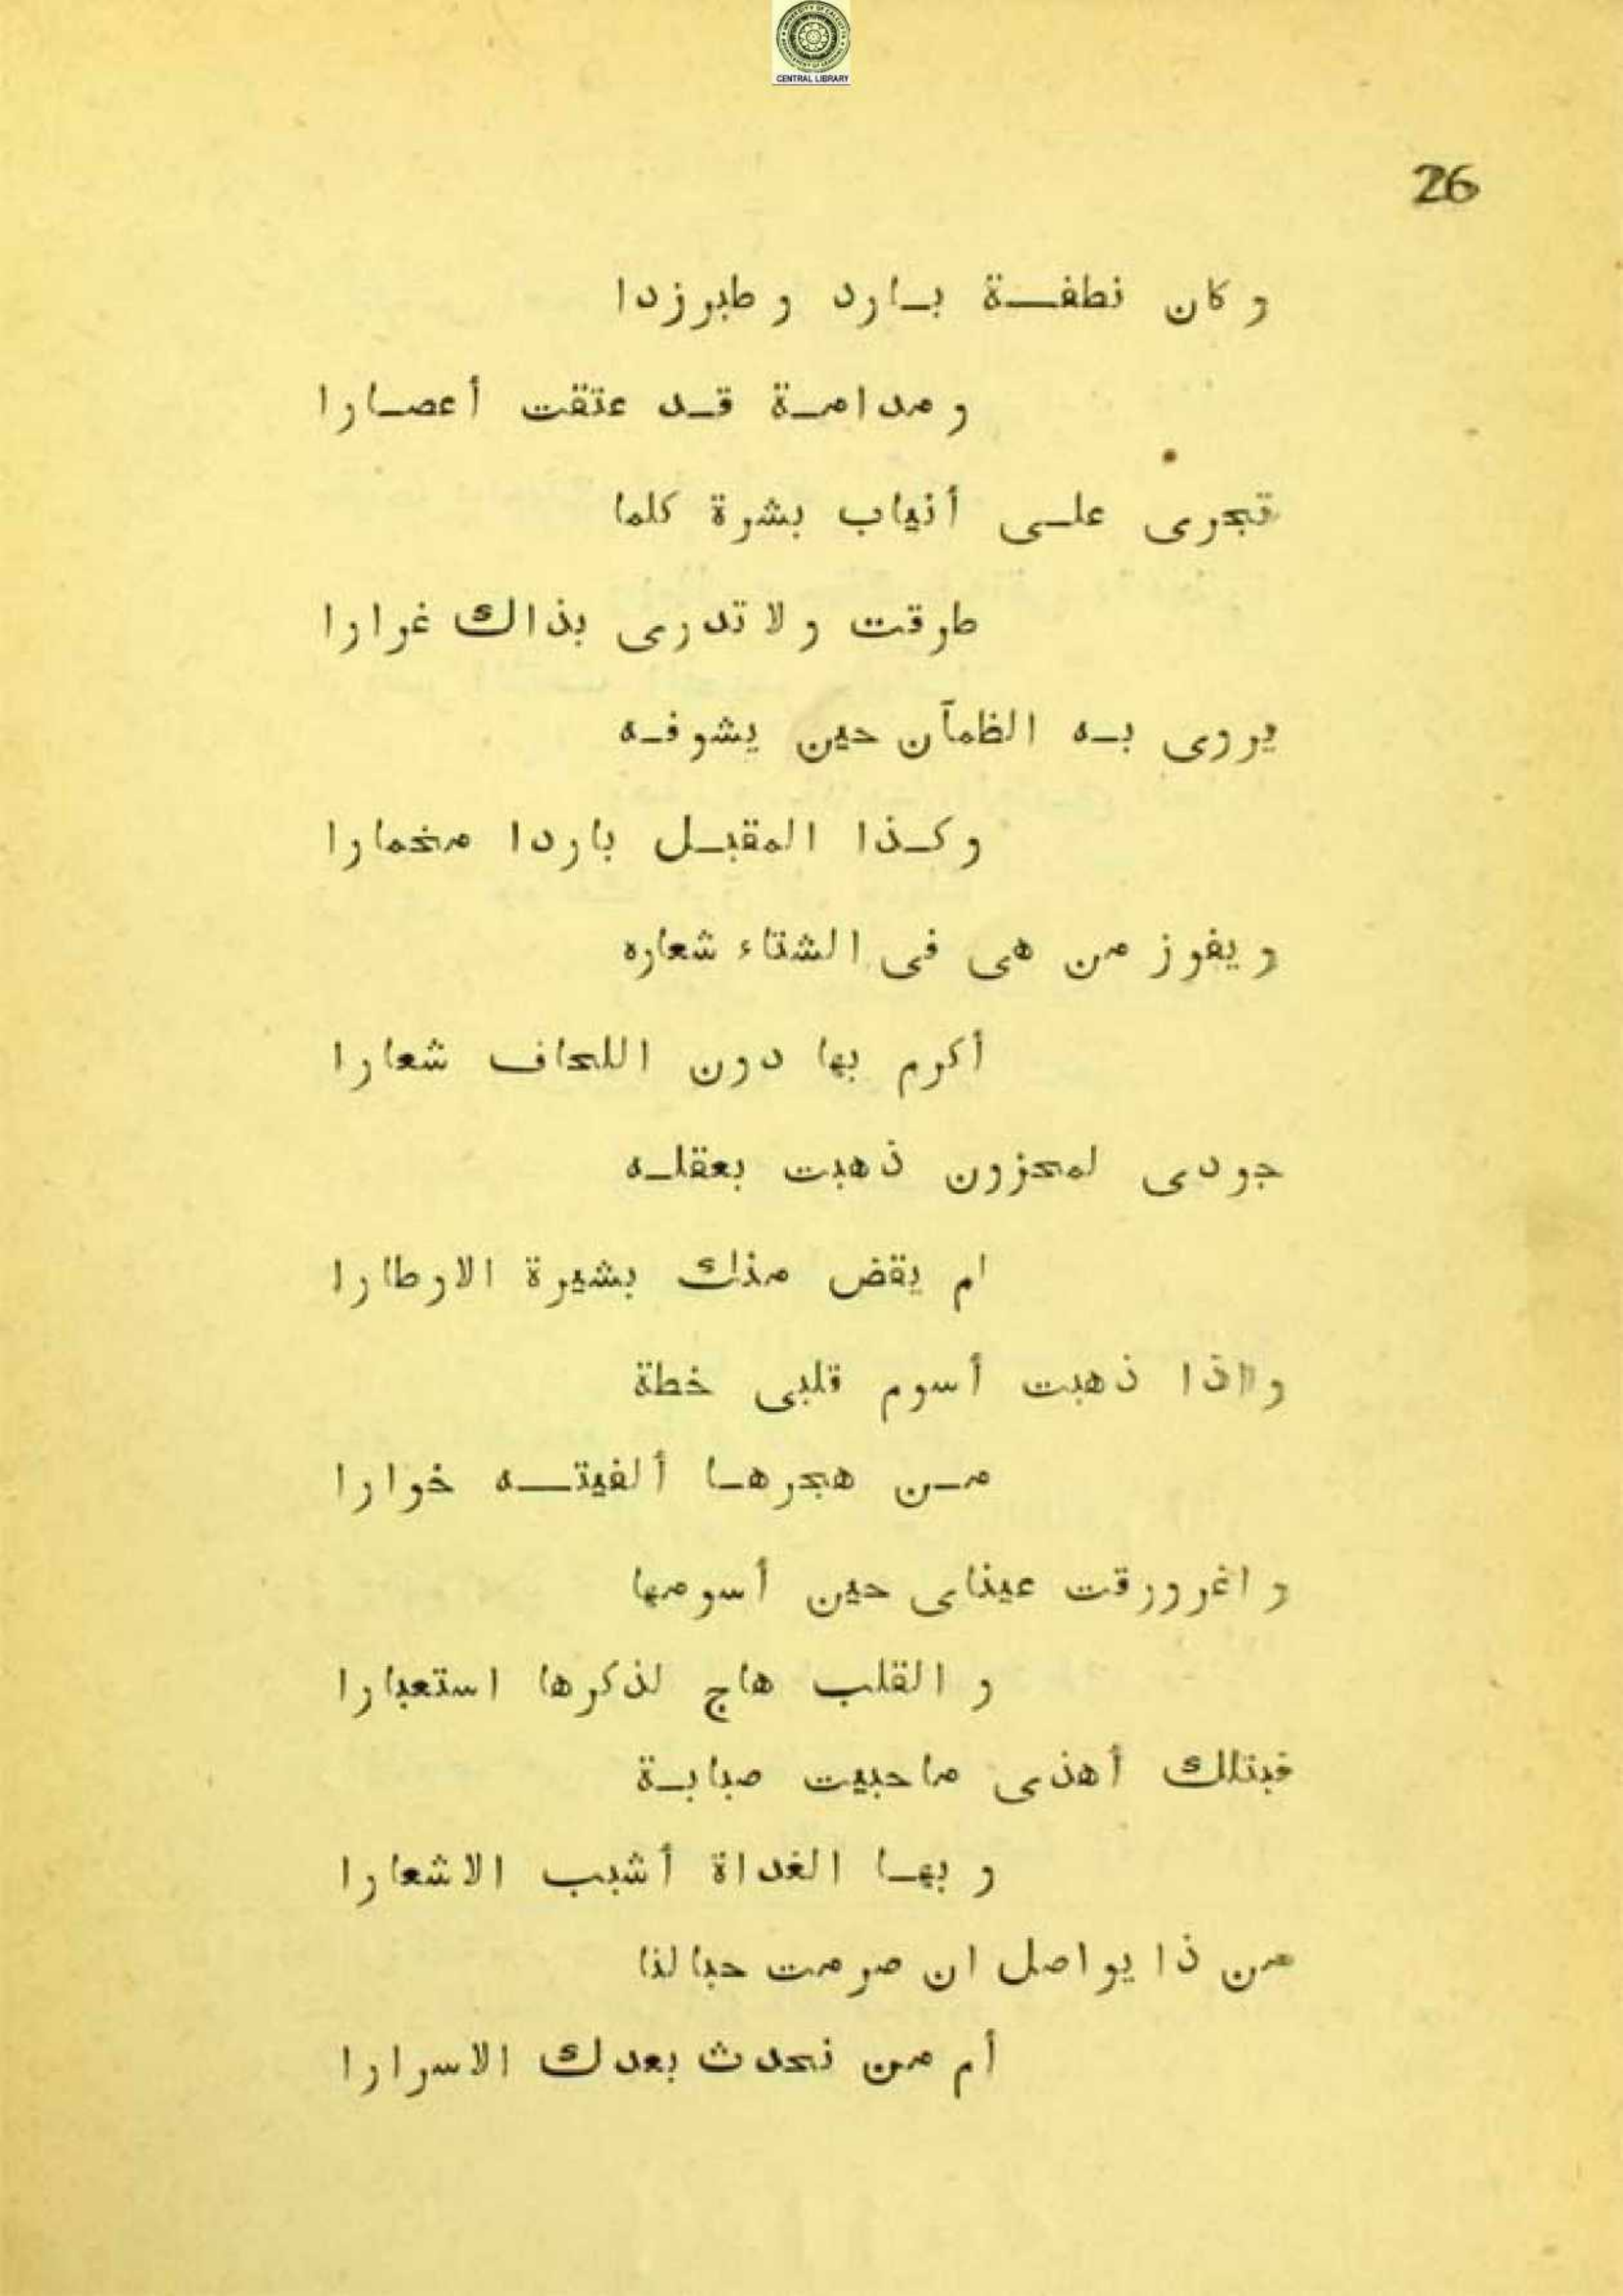 UNIVERSITY OF CALCUTTA
CENTRAL LIBRARY
26
و كان نطفــة بــارد و طبرزدا
و مدامــة قــد عتقت أعصــارا
تجرى علــى أنياب بشرة كلما
طرقت و لا تدرى بذاك غرارا
يروى بــه الظمآن حين يشوفــه
و كــذا المقبــل باردا مخمارا
و يفوز من هى فى الشتاء شعاره
أكرم بها دون اللحاف شعارا
جودى لمحزون ذهبت بعقلــه
ام يقض منك بشيرة الارطارا
و اذا ذهبت أسوم قلبى خطة
مــن هجرهــا ألفيتــه خوارا
و اغرورقت عيناى حين أسومها
و القلب هاج لذكرها استعبارا
فبتلك أهذى ما حبيت صبابــة
و بهــا الغداة أشبب الاشعارا
من ذا يواصل ان صرمت حبالنا
أم من نحدث بعدك الاسرارا